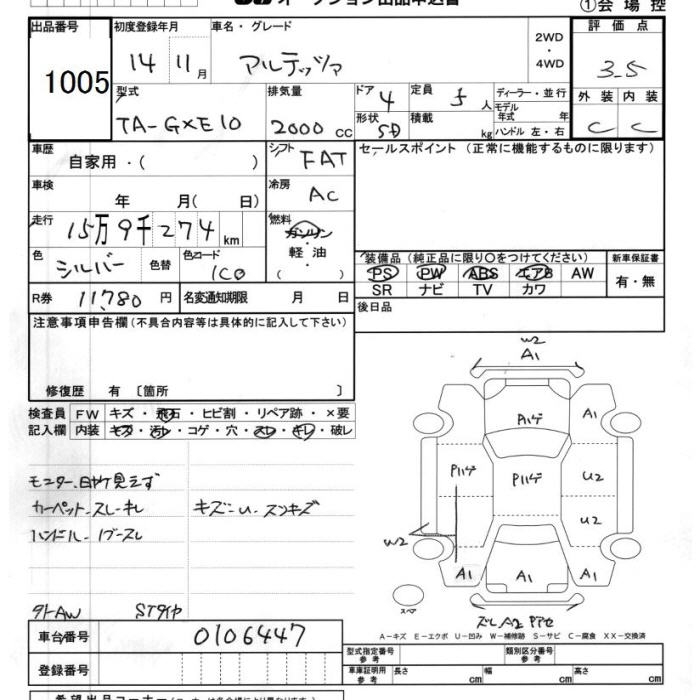 オークション出品申込書
①会場控
出品番号 初度登録年月 車名・グレード 2WD・4WD 評価点
1005 14 11月 アルテッツァ 3.5
型式 排気量 ドア 4 定員 5人 ディーラー・並行 外装 内装
モデル年式 年
TA-GXE10 2000cc 形状 SD 積載 kg ハンドル 左・右 C C
車歴 自家用・( ) シフト FAT セールスポイント (正常に機能するものに限ります)
車検 年 月( 日) 冷房 AC
走行 15万9千274km 燃料 ガソリン・軽油・( )
色 シルバー 色替 色コード 1C0 装備品 (純正品に限り○をつけてください) 新車保証書
PS PW ABS エアB AW 有・無
SR ナビ TV カワ
R券 11,780円 名変通知期限 月 日 後日品
注意事項申告欄 (不具合内容等は具体的に記入して下さい)
修復歴 有 〔箇所 〕
検査員記入欄 FW キズ・飛石・ヒビ割・リペア跡・×要
内装 キズ・汚れ・コゲ・穴・スレ・キレ・破レ
モニター、日ヤケ見えず
カーペット-スレ-キレ キズ-U-スンキズ
ハンドル-
外AW STタイヤ
W2
A1
Pハゲ A1
Pハゲ Pハゲ U2
U2
W2
A1 A1 A1
スペア
A2
A-キズ E-エクボ U-凹み W-補修跡 S-サビ C-腐食 XX-交換済
車台番号 0106447
型式指定番号 参考 類別区分番号 参考
登録番号
車庫証明用 参考 長さ cm 幅 cm 高さ cm
希望出品コーナー